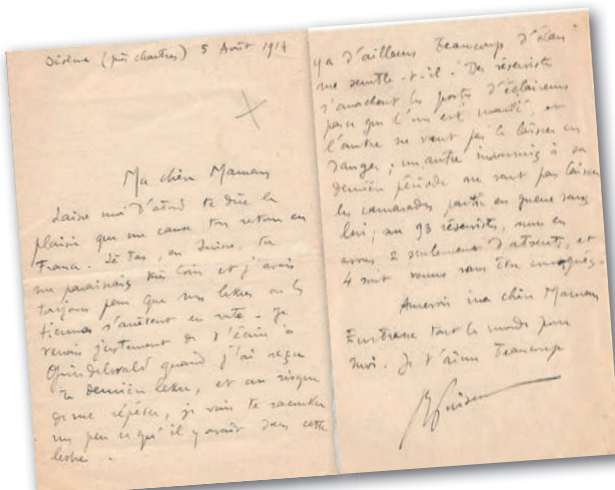 (près Chartres) 5 Août 1914
Ma chère Maman
Laisse moi d'abord te dire le
plaisir que me cause ton retour en
France. Là bas, en Suisse, tu
me paraissais très loin et j'avais
toujours peur que mes lettres ou les
tiennes s'arrêtent en route - Je
venais justement de t'écrire à
Grindelwald quand j'ai reçu
ta dernière lettre, et au risque
de me répéter, je vais te raconter
un peu ce qu'il y avait dans cette
lettre -
y a d'ailleurs beaucoup d'élan
me semble-t-il. Des réservistes
s'arrachent les postes d'éclaireurs
parce que l'un est marié, et
l'autre ne veut pas le laisser en
danger ; un autre insoumis à sa
dernière période ne veut pas laisser
les camarades partir en guerre sans
lui ; sur 93 réservistes, nous en
avons 2 seulement d'absents, et
4 sont venus sans être convoqués.
Au revoir ma chère Maman
Embrasse tout le monde pour
moi. Je t'aime beaucoup